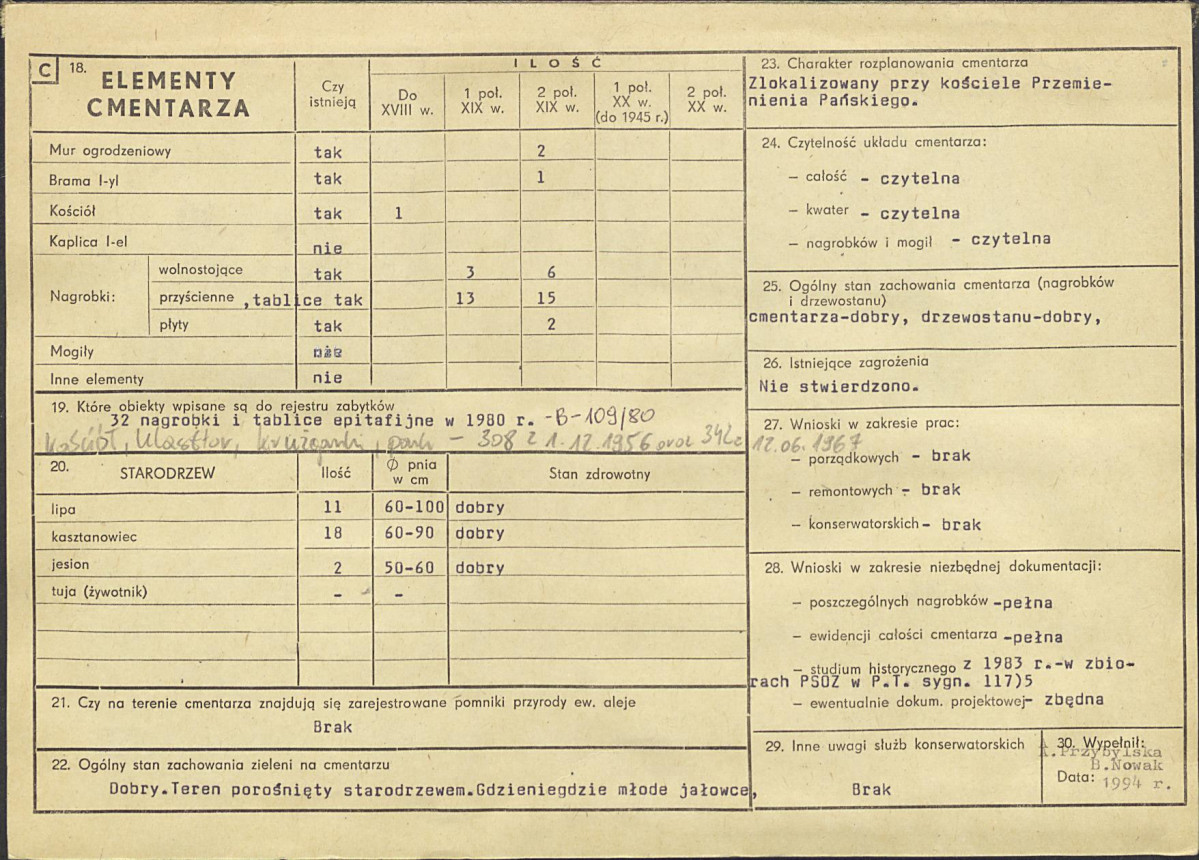 C 18. ELEMENTY CMENTARZA
Czy istnieją
I L O Ś Ć
Do XVIII w.
1 poł. XIX w.
2 poł. XIX w.
1 poł. XX w. (do 1945 r.)
2 poł. XX w.
Mur ogrodzeniowy tak 2
Brama I-yl tak 1
Kościół tak 1
Kaplica I-el nie
Nagrobki:
wolnostojące tak 3 6
przyścienne ,tablice tak 13 15
płyty tak 2
Mogiły nie
Inne elementy nie
19. Które obiekty wpisane są do rejestru zabytków
32 nagrobki i tablice epitafijne w 1980 r. -B-109/80
kościół, klasztor, krużganki, park - 308 z 1.12.1956 oraz 342 z 12.06.1967
20. STARODRZEW Ilość Ø pnia w cm Stan zdrowotny
lipa 11 60-100 dobry
kasztanowiec 18 60-90 dobry
jesion 2 50-60 dobry
tuja (żywotnik) - -
21. Czy na terenie cmentarza znajdują się zarejestrowane pomniki przyrody ew. aleje
Brak
22. Ogólny stan zachowania zieleni na cmentarzu
Dobry.Teren porośnięty starodrzewem.Gdzieniegdzie młode jałowce,
23. Charakter rozplanowania cmentarza
Zlokalizowany przy kościele Przemie-
nienia Pańskiego.
24. Czytelność układu cmentarza:
– całość - czytelna
– kwater - czytelna
– nagrobków i mogił - czytelna
25. Ogólny stan zachowania cmentarza (nagrobków
i drzewostanu)
cmentarza-dobry, drzewostanu-dobry,
26. Istniejące zagrożenia
Nie stwierdzono.
27. Wnioski w zakresie prac:
– porządkowych - brak
– remontowych - brak
– konserwatorskich - brak
28. Wnioski w zakresie niezbędnej dokumentacji:
– poszczególnych nagrobków -pełna
– ewidencji całości cmentarza -pełna
– studium historycznego z 1983 r.-w zbio-
rach PSOZ w P.T. sygn. 117)5
– ewentualnie dokum. projektowej- zbędna
29. Inne uwagi służb konserwatorskich
Brak
30. Wypełnił:
A.Przybylska
B.Nowak
Data: 1994 r.